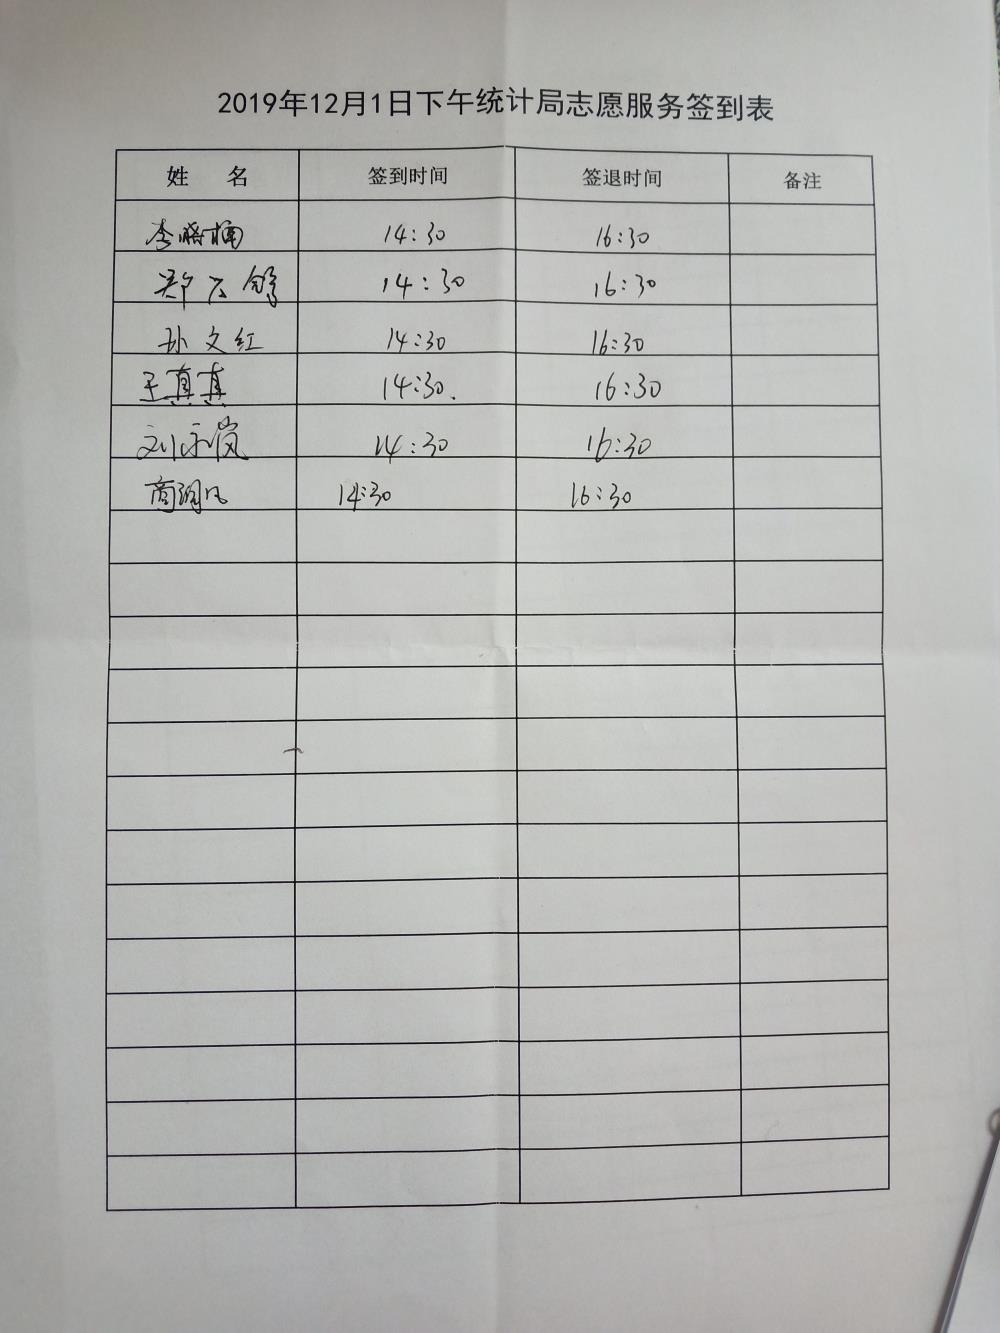 2019年12月1日下午统计局志愿服务签到表
姓 名 签到时间 签退时间 备注
李晓楠 14:30 16:30
郑 14:30 16:30
孙文红 14:30 16:30
王真真 14:30. 16:30
刘永岚 14:30 16:30
商 14:30 16:30